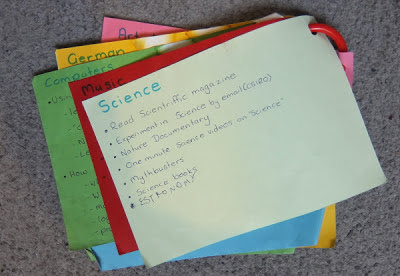 Art
German
Computers
Music
Science
• Read Scientriffic magazine
• Experiment in Science by email (CSIRO)
• Nature Documentary
• One minute Science videos on Science"
• Mythbusters
• Science books
• ESTRONOMY
• Usin
• How